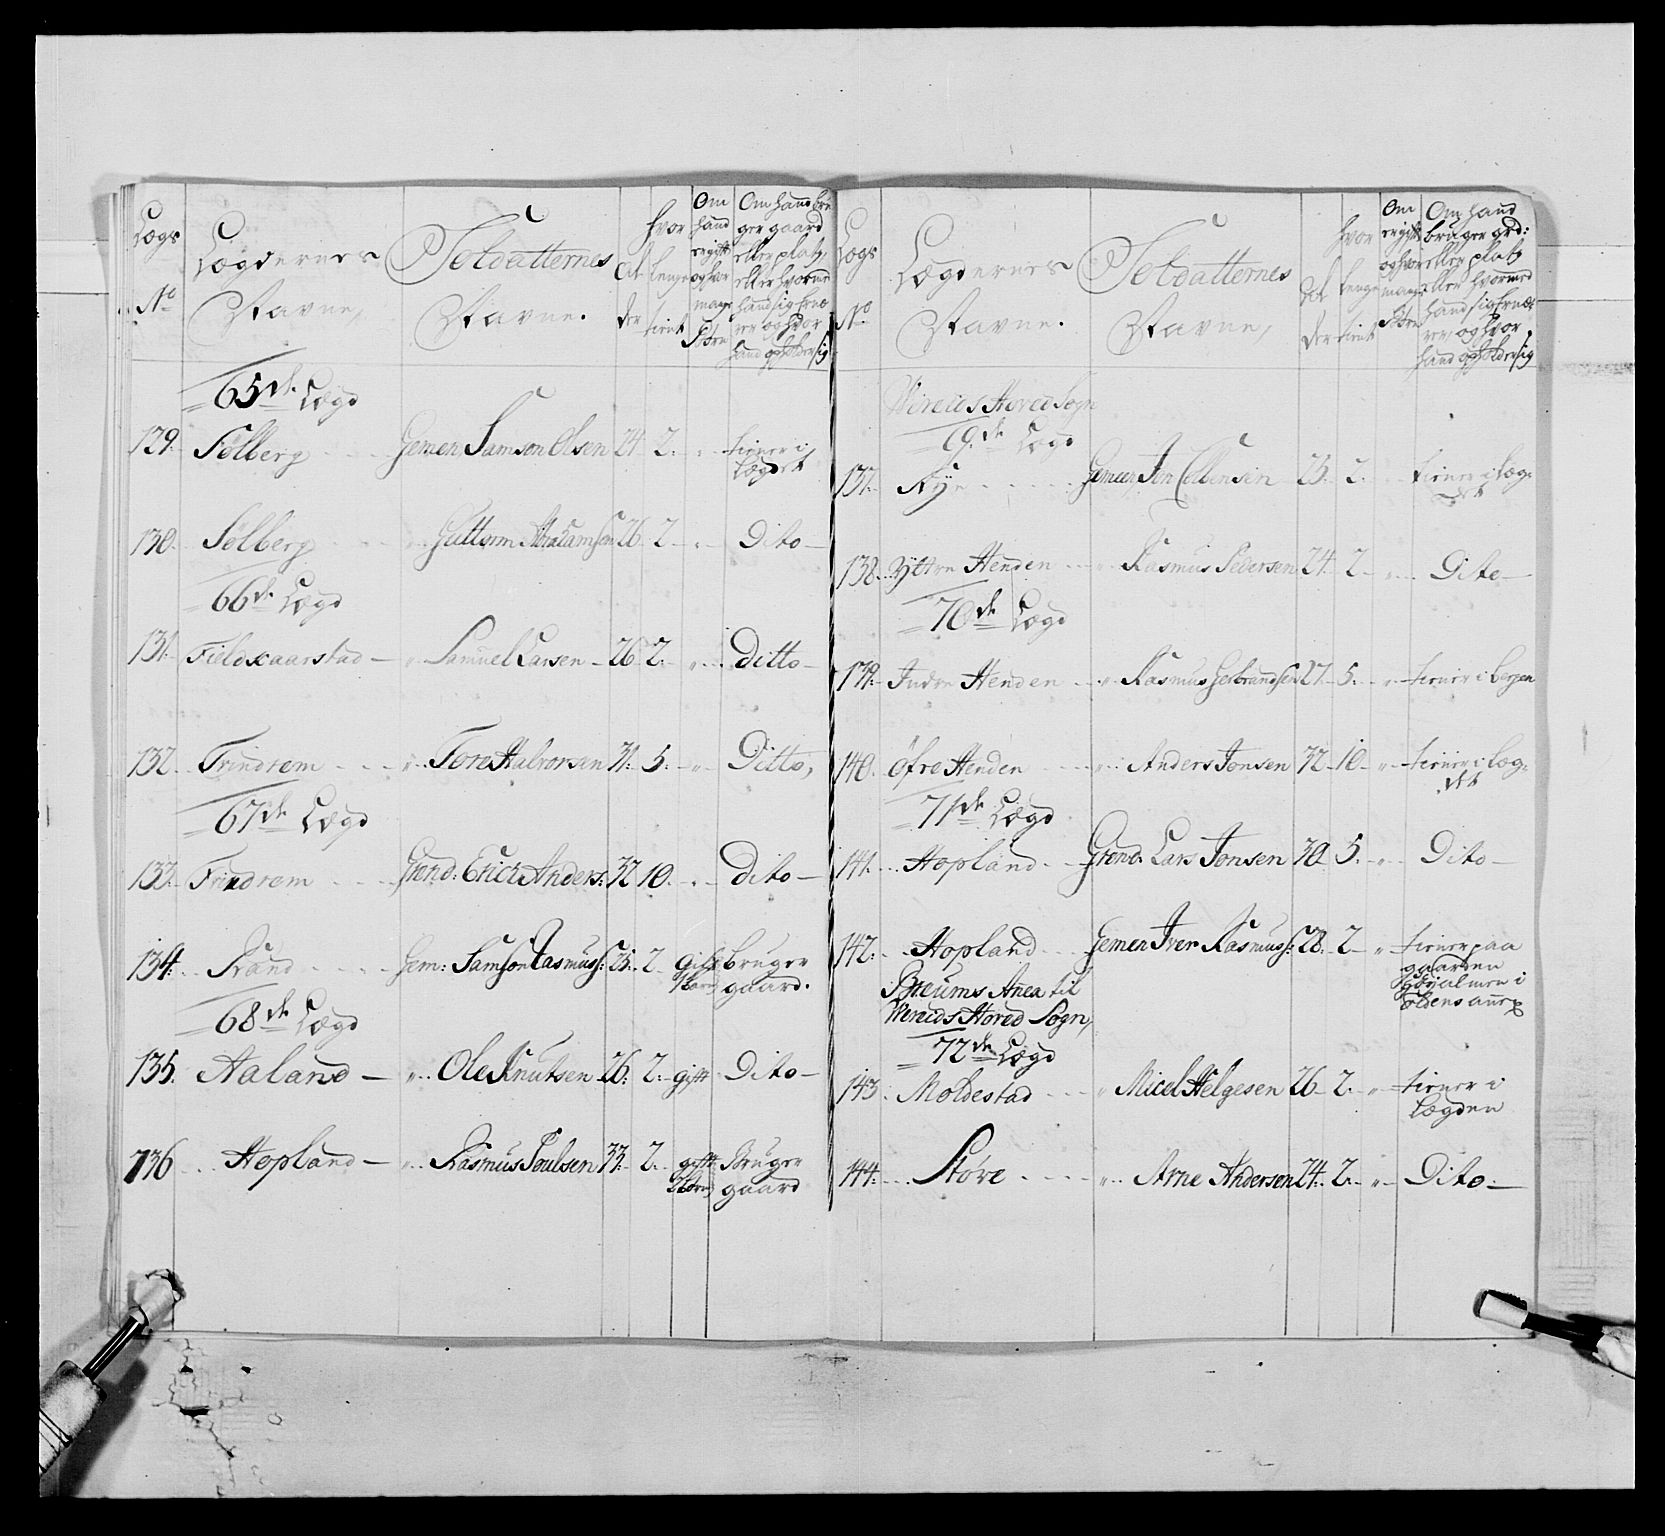 Lægs No
Lægdernes Navne,
Soldatternes Navne.
Alder
hvor lenge tient
Om hand er gift og hvor mange Børn
Om hand bruger gaard eller platz, eller hvormed hand sig ernærer og hvor hand opholder sig
65de Lægd
129. Sølberg Gemen Samson Olsen 24 2. tiener i Lægdet
130. Sølberg Guttorm Abrahamsen 26 2 Dito
66de Lægd
131. Fieldskaarstad Samuel Larsen 26 2. Ditto
132. Frindrem Tore Halvorsen 31. 5. Ditto,
67de Lægd
133. Frindrem Grend: Erich Anders: 32 10. Dito
134. Strand Gem: Samson Rasmus: 25. 2 gift 1 barn bruger gaard.
68de Lægd
135. Aaland Ole Knutsen 26. 2. gift Dito
136 Hopland Rasmus Poulsen 33. 2. gift 2 børn Bruger gaard
Lægs No
Lægdernes Navne.
Soldatternes Navne,
Alder
hvor lenge tient
Om er gift og hvor mange Børn
Om hand bruger grd: eller platz eller hvormed hand sig ernærer, og hvor hand opholder sig
Wereids Hoved Sogn
69de Lægd
137. Rye Gemeen Jon Colbensen 23. 2. tiener i Lægdet
138. Yttre Henden Rasmus Pedersen 24 2 Dito
70de Lægd
139. Indre Henden Rasmus Gerbrandsen 27. 5. tiener i bergen
140. Øfre Henden Anders Jonsen 32 10. tiener i Lægdet
71de Lægd
141. Hopland Grend. Lars Jonsen 30. 5. Dito
142. Hopland Gemen Iver Rasmus: 28. 2 tiener paa gaarden i oldens annex
Breums Anex til
Wereids Hoved Sogn,
72de Lægd
143. Moldestad Micel Helgesen 26 2. tiener i Lægden
144. Støve Arne Andersen 24. 2. Dito.